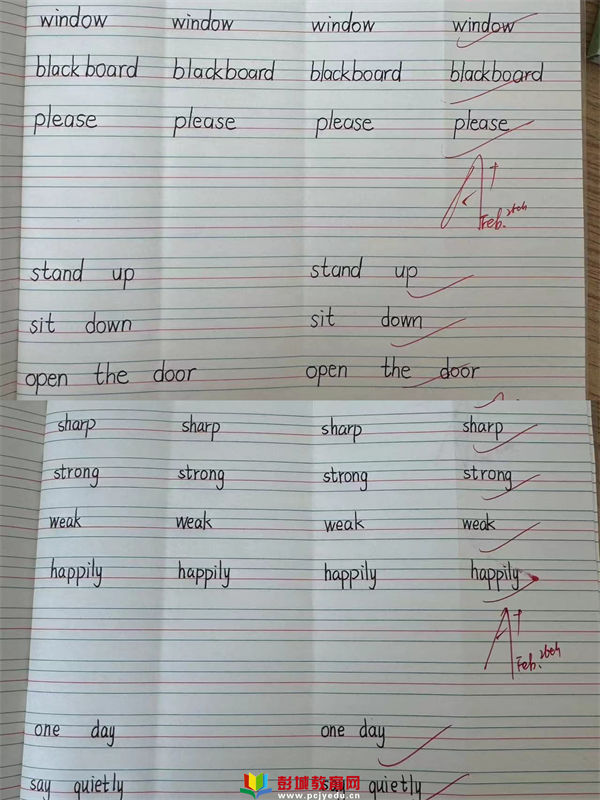 window window window window
blackboard blackboard blackboard blackboard
please please please please
A+
Feb. 26th
stand up stand up
sit down sit down
open the door open the door
sharp sharp sharp sharp
strong strong strong strong
weak weak weak weak
happily happily happily happily
A+
Feb. 26th
one day one day
say quietly say quietly
彭城教育网
www.pcjyedu.cn